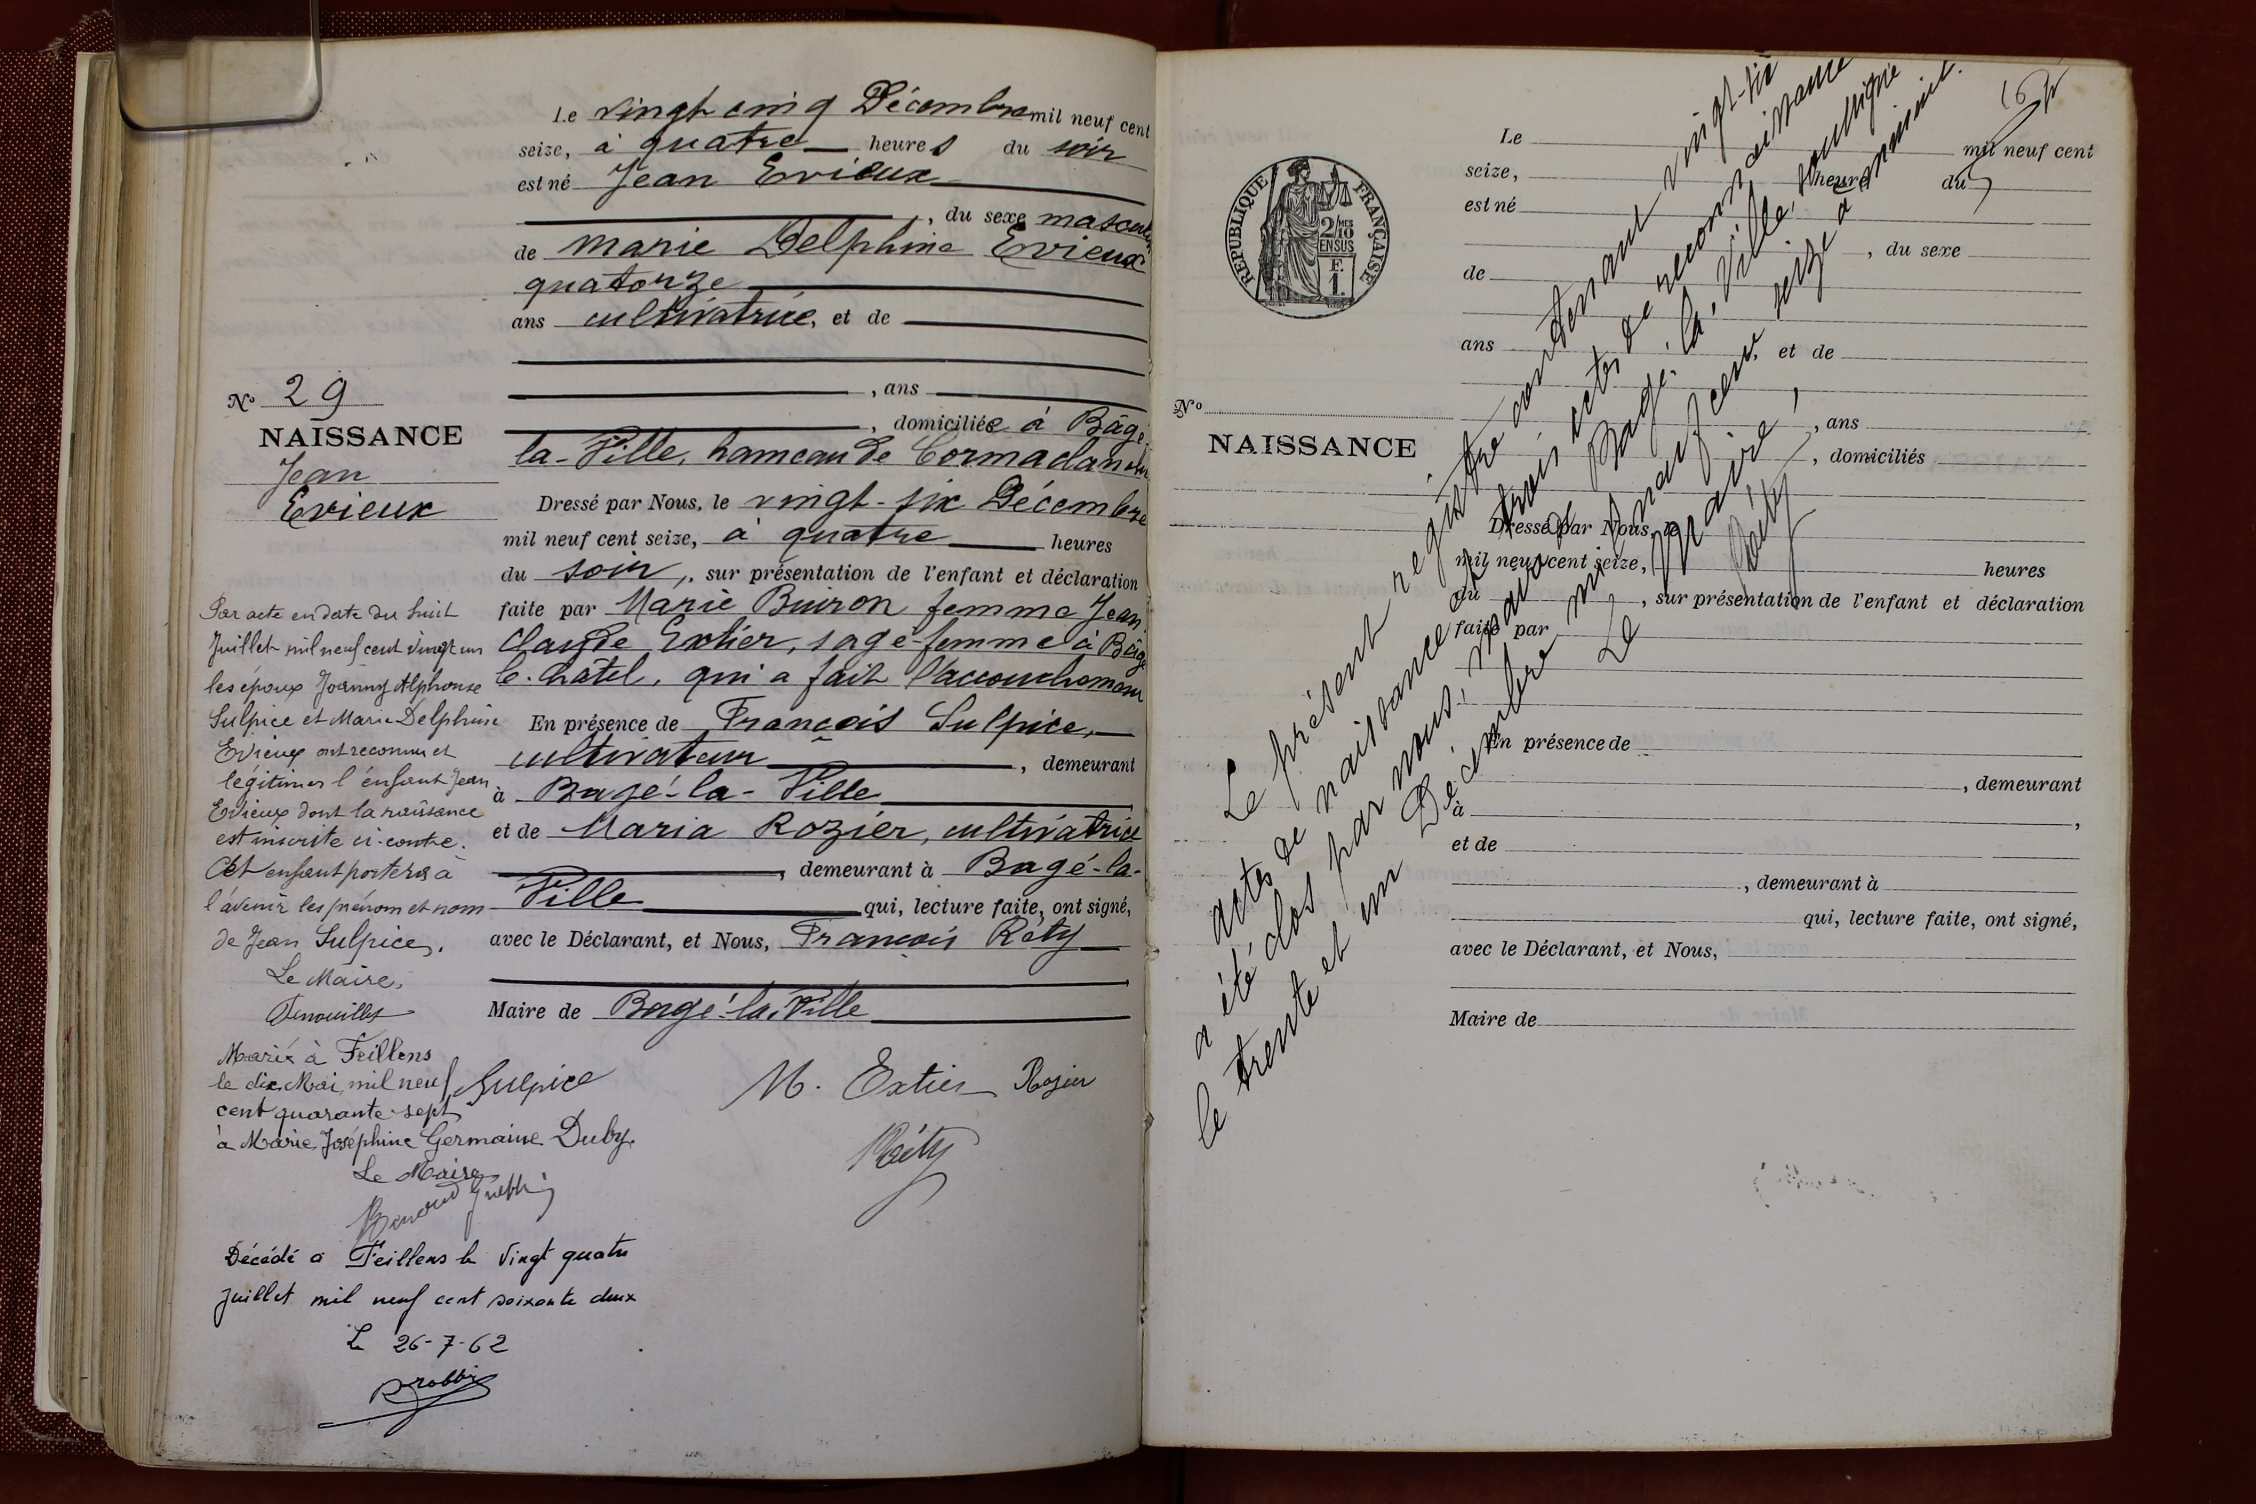 Le vingt cinq Décembre mil neuf cent
seize, à quatre heures du soir
est né Jean Evieux
, du sexe masculin
de Marie Delphine Evieux
quatorze
ans cultivatrice, et de
, ans
, domiciliée à Bâgé-
la-Ville, hameau de
Nº 29
NAISSANCE
Jean
Evieux
Dressé par Nous, le vingt-six Décembre
mil neuf cent seize, à quatre heures
du soir, sur présentation de l'enfant et déclaration
faite par Marie Buiron femme Jean
Claude Extier, sage-femme à Bâgé
le-Châtel, qui a fait l'accouchement
En présence de François Sulpice,
cultivateur, demeurant
à Bagé-la-Ville
et de Maria Rozier, cultivatrice
, demeurant à Bagé-la-
Ville qui, lecture faite, ont signé,
avec le Déclarant, et Nous, François Réty
Maire de Bagé-la-Ville
Sulpice M. Extier Rozier
Réty
Par acte en date du huit
Juillet mil neuf cent vingt un
les époux Joanny Alphonse
Sulpice et Marie Delphine
Evieux ont reconnu et
légitimer l'enfant Jean
Evieux dont la naissance
est inscrite ci-contre.
Cet enfant portera à
l'avenir les prénom et nom
de Jean Sulpice.
Le Maire,
Marié à Feillens
le dix Mai mil neuf
cent quarante-sept
à Marie Joséphine Germaine Duby.
Le Maire
Décédé à Feillens le vingt quatre
juillet mil neuf cent soixante deux
Le 26-7-62
RÉPUBLIQUE FRANÇAISE
2/10 EN SUS
F.
1.
Le mil neuf cent
seize, heure du
est né
, du sexe
de
ans, et de
, ans
, domiciliés
Nº
NAISSANCE
Dressé par Nous, le
mil neuf cent seize, heures
du, sur présentation de l'enfant et déclaration
faite par
En présence de
, demeurant
à,
et de
, demeurant à
qui, lecture faite, ont signé,
avec le Déclarant, et Nous,
Maire de
Le présent registre contenant vingt-six
actes de naissance et trois actes de reconnaissance
a été clos par nous, maire de Bagé-la-Ville, soussigné
le trente et un Décembre mil neuf cent seize à minuit.
Le Maire,
Réty